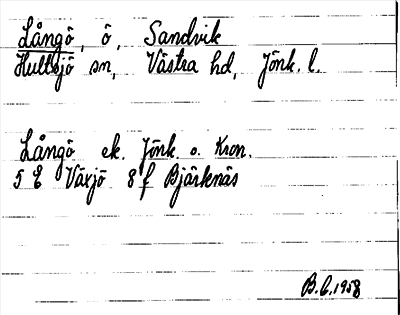 Långö, ö, Sandvik
Hultsjö sn, Västra hd, Jönk. l.
Långö ek. Jönk. o. Kron.
5 E Växjö 8 f Bjärknäs
B.C. 1958